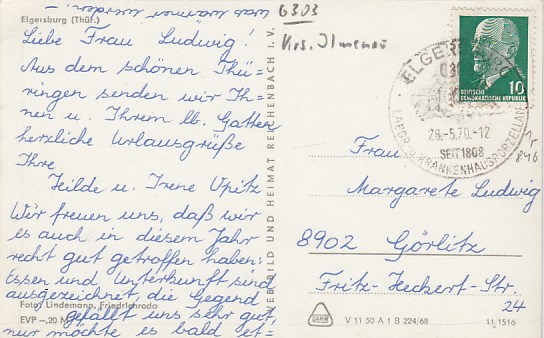 was wärmer werden. –
Elgersburg (Thür.)
Liebe Frau Ludwig!
Aus dem schönen Thü=
ringen senden wir Ih=
nen u. Ihrem lb. Gatten
herzliche Urlaubsgrüße
Ihre
Heilde u. Irene Opitz
Wir freuen uns, daß wir
es auch in diesem Jahr
recht gut getroffen haben:
Essen und Unterkunft sind
ausgezeichnet, die Gegend
Foto: Lindemann, Friedrichroda
gefällt uns sehr gut,
EVP –,20 M
nur möchte es bald et=
VEB BILD UND HEIMAT REICHENBACH I. V.
6303
Krs. Ilmenau
DEUTSCHE
DEMOKRATISCHE REPUBLIK
10
ELGERSBURG
630
28.-5.70.-12
SEIT 1808
LABOR- u. KRANKENHAUSPORZELLANE
846
Frau
Margarete Ludwig
8902 Görlitz
Fritz-Heckert-Str.
24
V 11 50 A 1 B 224/68
11/1516